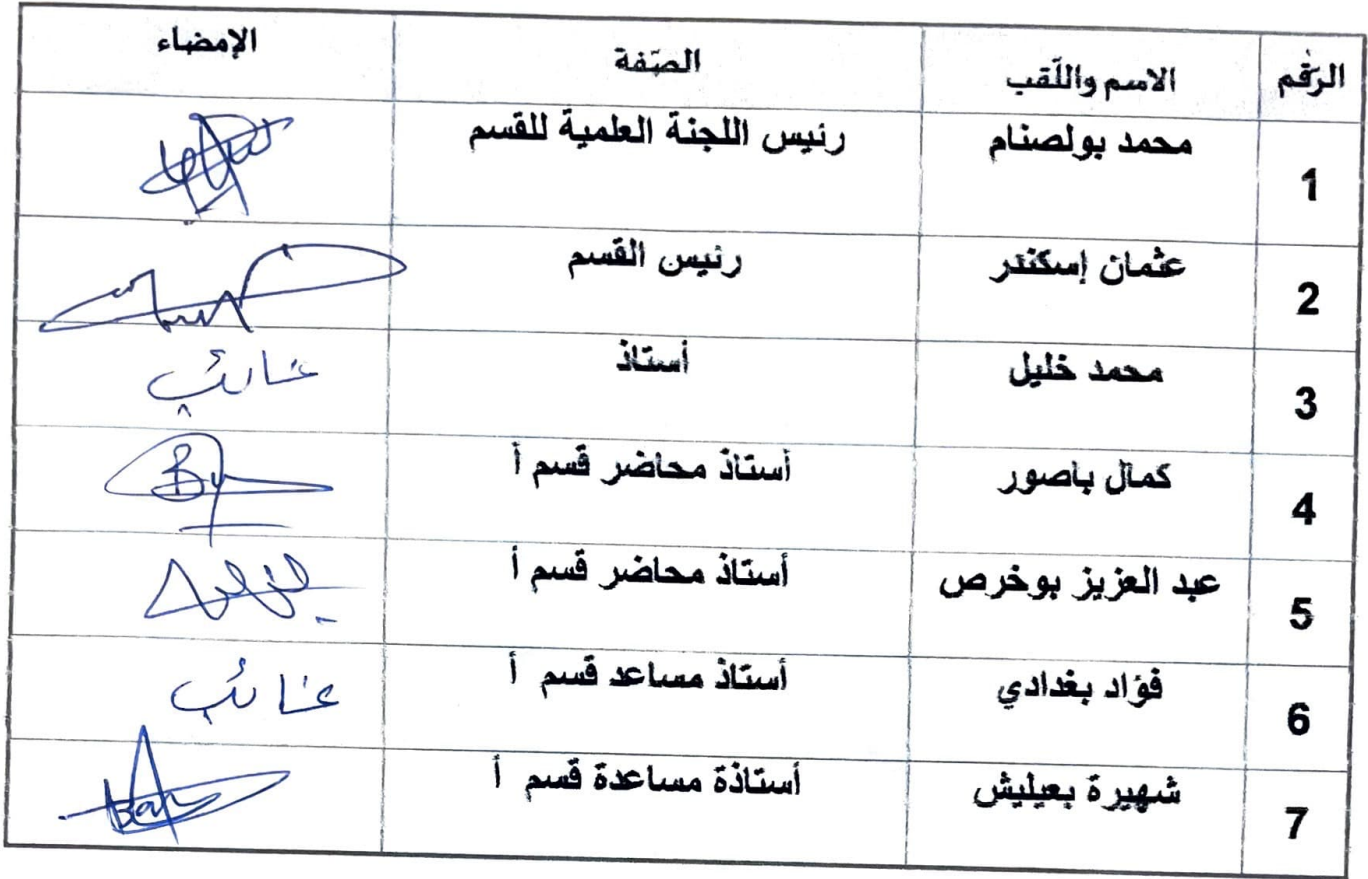 الرّقم الاسم واللّقب الصّفة الإمضاء
1 محمد بولصنام رئيس اللجنة العلمية للقسم
2 عثمان إسكندر رئيس القسم
3 محمد خليل أستاذ غائب
4 كمال باصور أستاذ محاضر قسم أ
5 عبد العزيز بوخرص أستاذ محاضر قسم أ
6 فؤاد بغدادي أستاذ مساعد قسم أ غائب
7 شهيرة بعيليش أستاذة مساعدة قسم أ